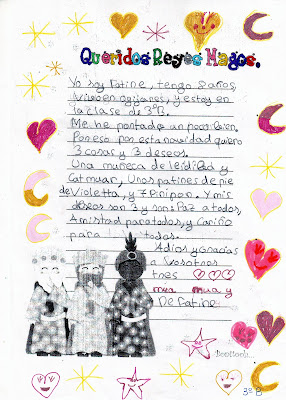 Queridos Reyes Magos.
Yo soy Fatine, tengo 8 años,
vivo en ogijares, y estoy en
la clase de 3ºB.
Me he portado un poco bien,
Por eso por esta navidad quiero
3 cosas y 3 deseos.
Una muñeca de y
Catmuar, Unos patines de pie
de Violetta, y 7 Pinipon. Y mis
deseos son 3 y son: Paz a todos,
Amistad para todos, y Cariño
para todos.
Adios y Gracias
a Vosotros
tres
mua mua y
De Fatine
3º B